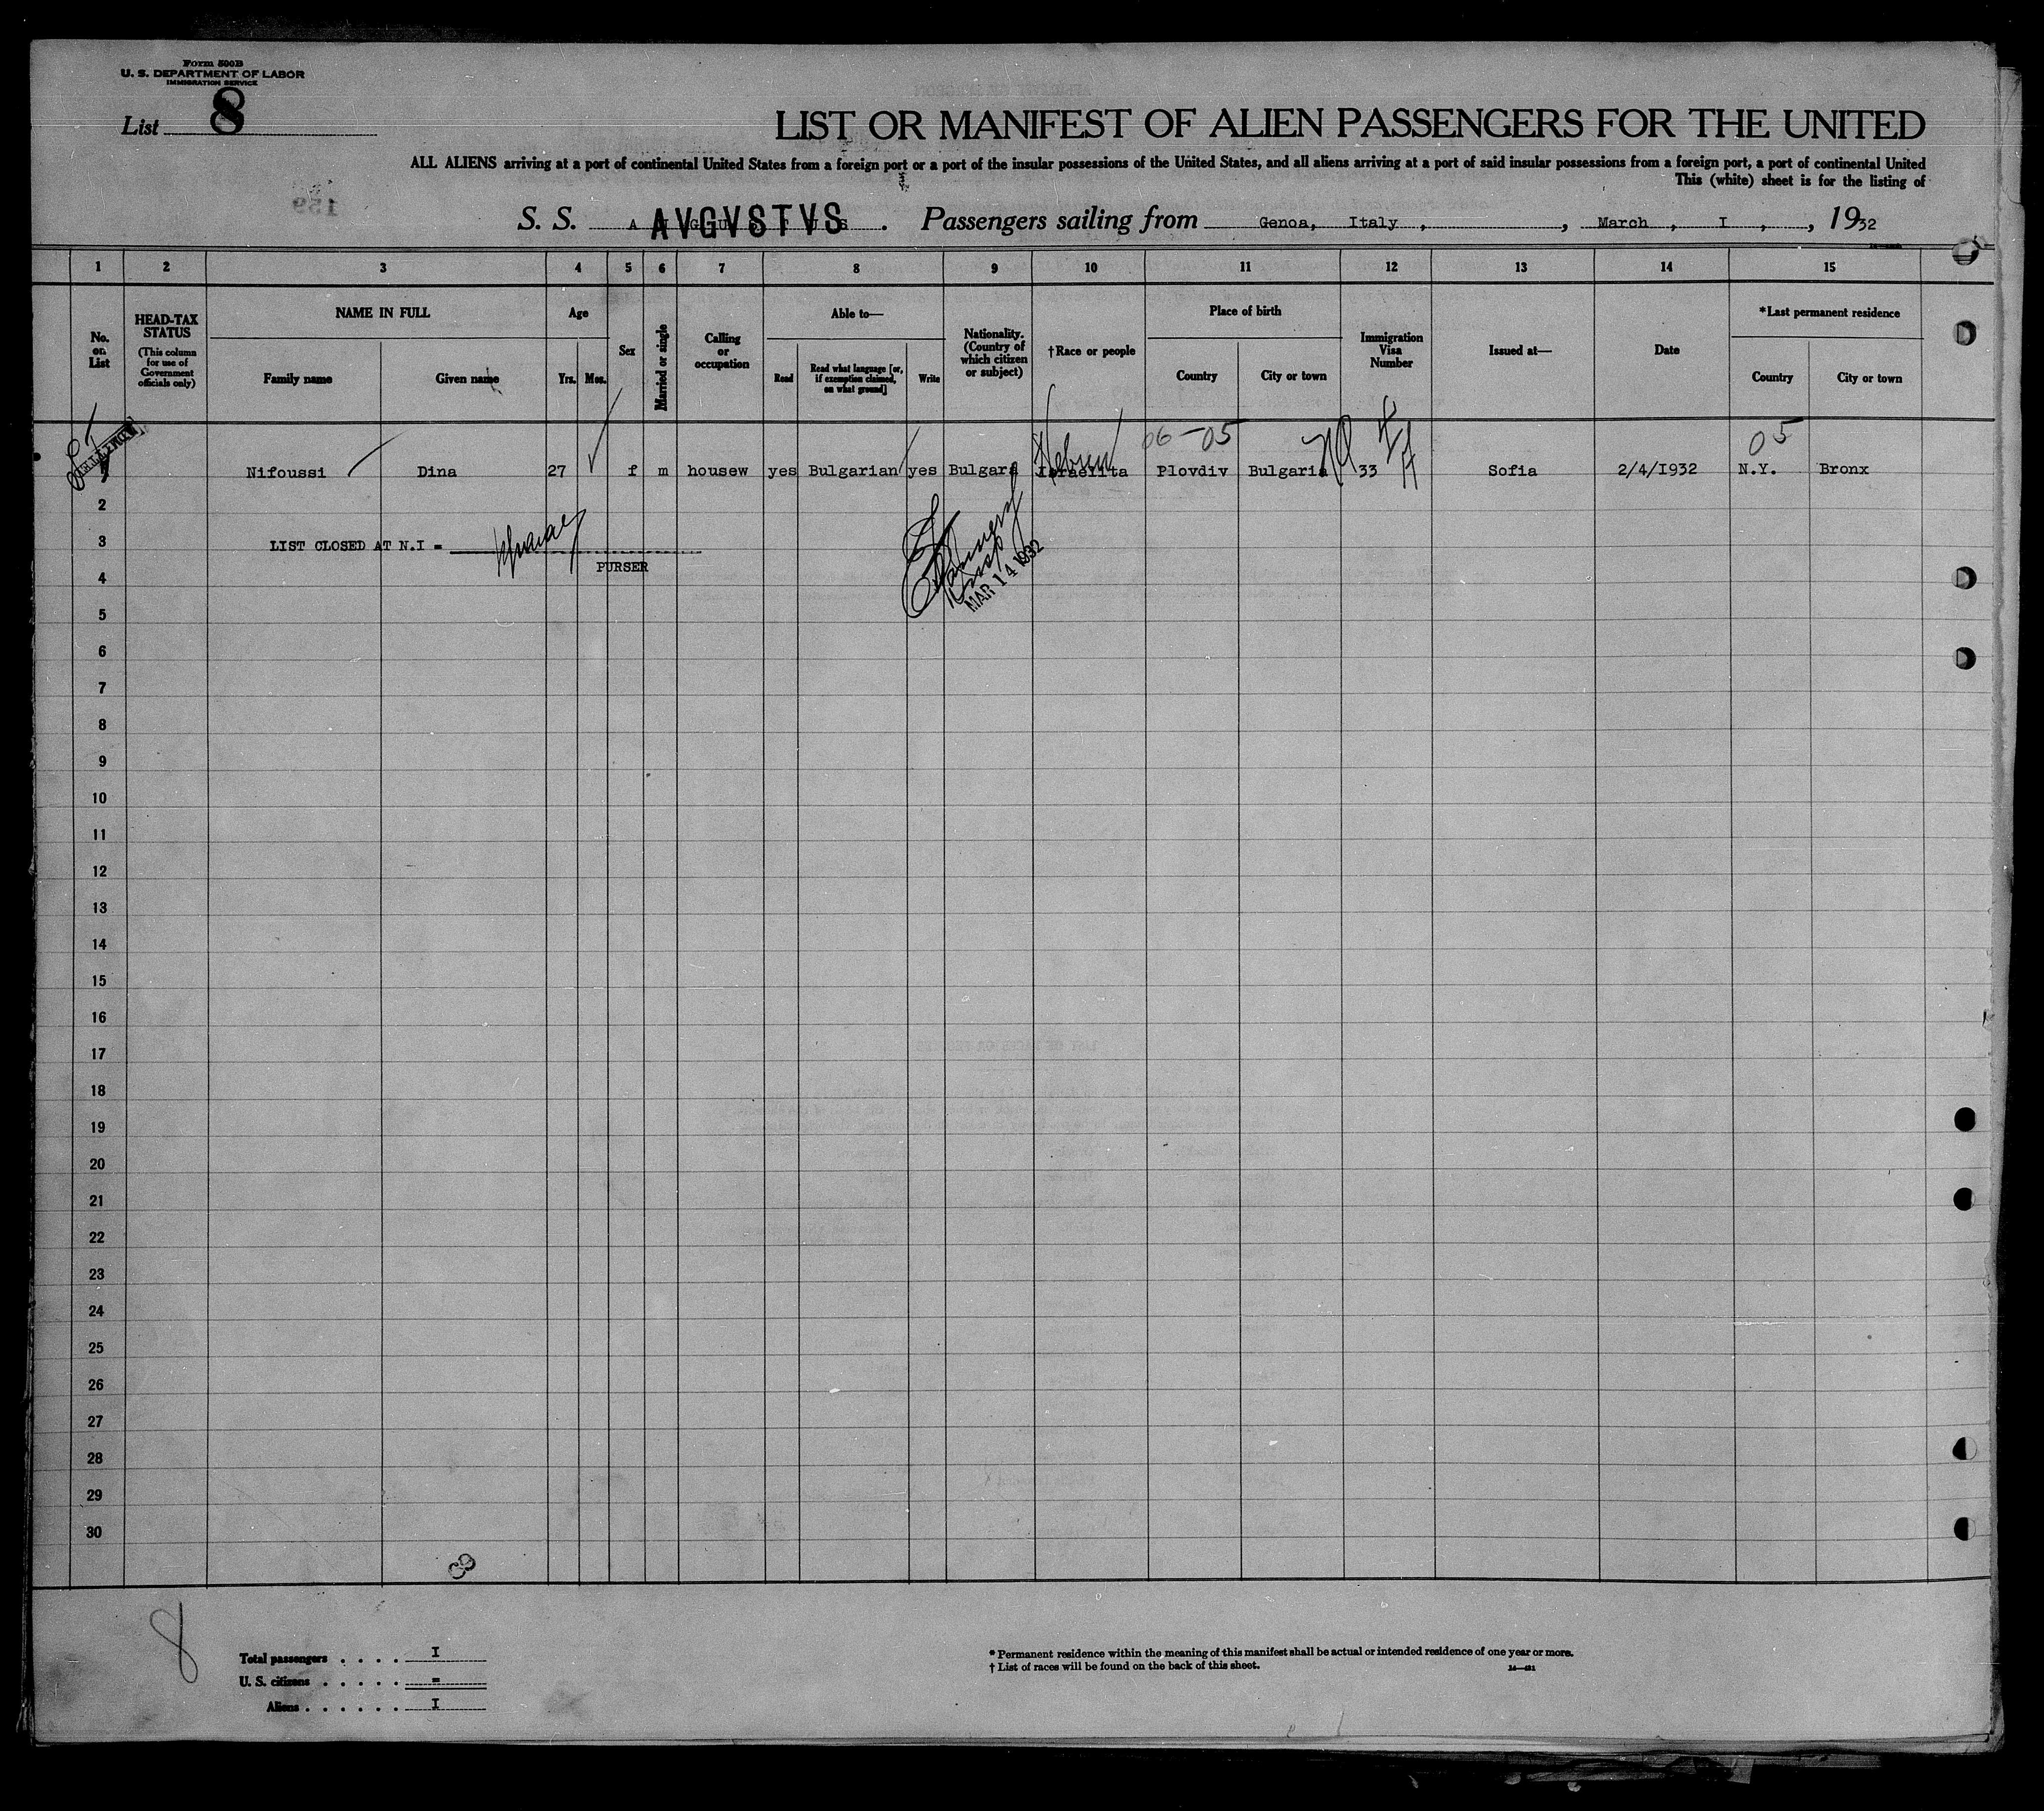 Form 500B
U. S. DEPARTMENT OF LABOR
IMMIGRATION SERVICE
List 8
LIST OR MANIFEST OF ALIEN PASSENGERS FOR THE UNITED
ALL ALIENS arriving at a port of continental United States from a foreign port or a port of the insular possessions of the United States, and all aliens arriving at a port of said insular possessions from a foreign port, a port of continental United
This (white) sheet is for the listing of
159
S. S. AVGVSTVS . Passengers sailing from Genoa, Italy , , March , I , , 1932
1 2 3 4 5 6 7 8 9 10 11 12 13 14 15
No. on List
HEAD-TAX STATUS
(This column for use of Government officials only)
NAME IN FULL
Family name Given name
Age
Yrs. Mos.
Sex
Married or single
Calling or occupation
Able to—
Read Read what language [or, if exemption claimed, on what ground] Write
Nationality. (Country of which citizen or subject)
†Race or people
Place of birth
Country City or town
Immigration Visa Number
Issued at—
Date
*Last permanent residence
Country City or town
Hebrew 06-05 NQ 05
Nifoussi Dina 27 f m housew yes Bulgarian yes Bulgara Israelita Plovdiv Bulgaria 33 Sofia 2/4/1932 N.Y. Bronx
2
3
LIST CLOSED AT N.I =
PURSER
MAR 14 1932
4
5
6
7
8
9
10
11
12
13
14
15
16
17
18
19
20
21
22
23
24
25
26
27
28
29
30
8
8
Total passengers . . . . I
U. S. citizens . . . . . =
Aliens . . . . . . I
* Permanent residence within the meaning of this manifest shall be actual or intended residence of one year or more.
† List of races will be found on the back of this sheet.